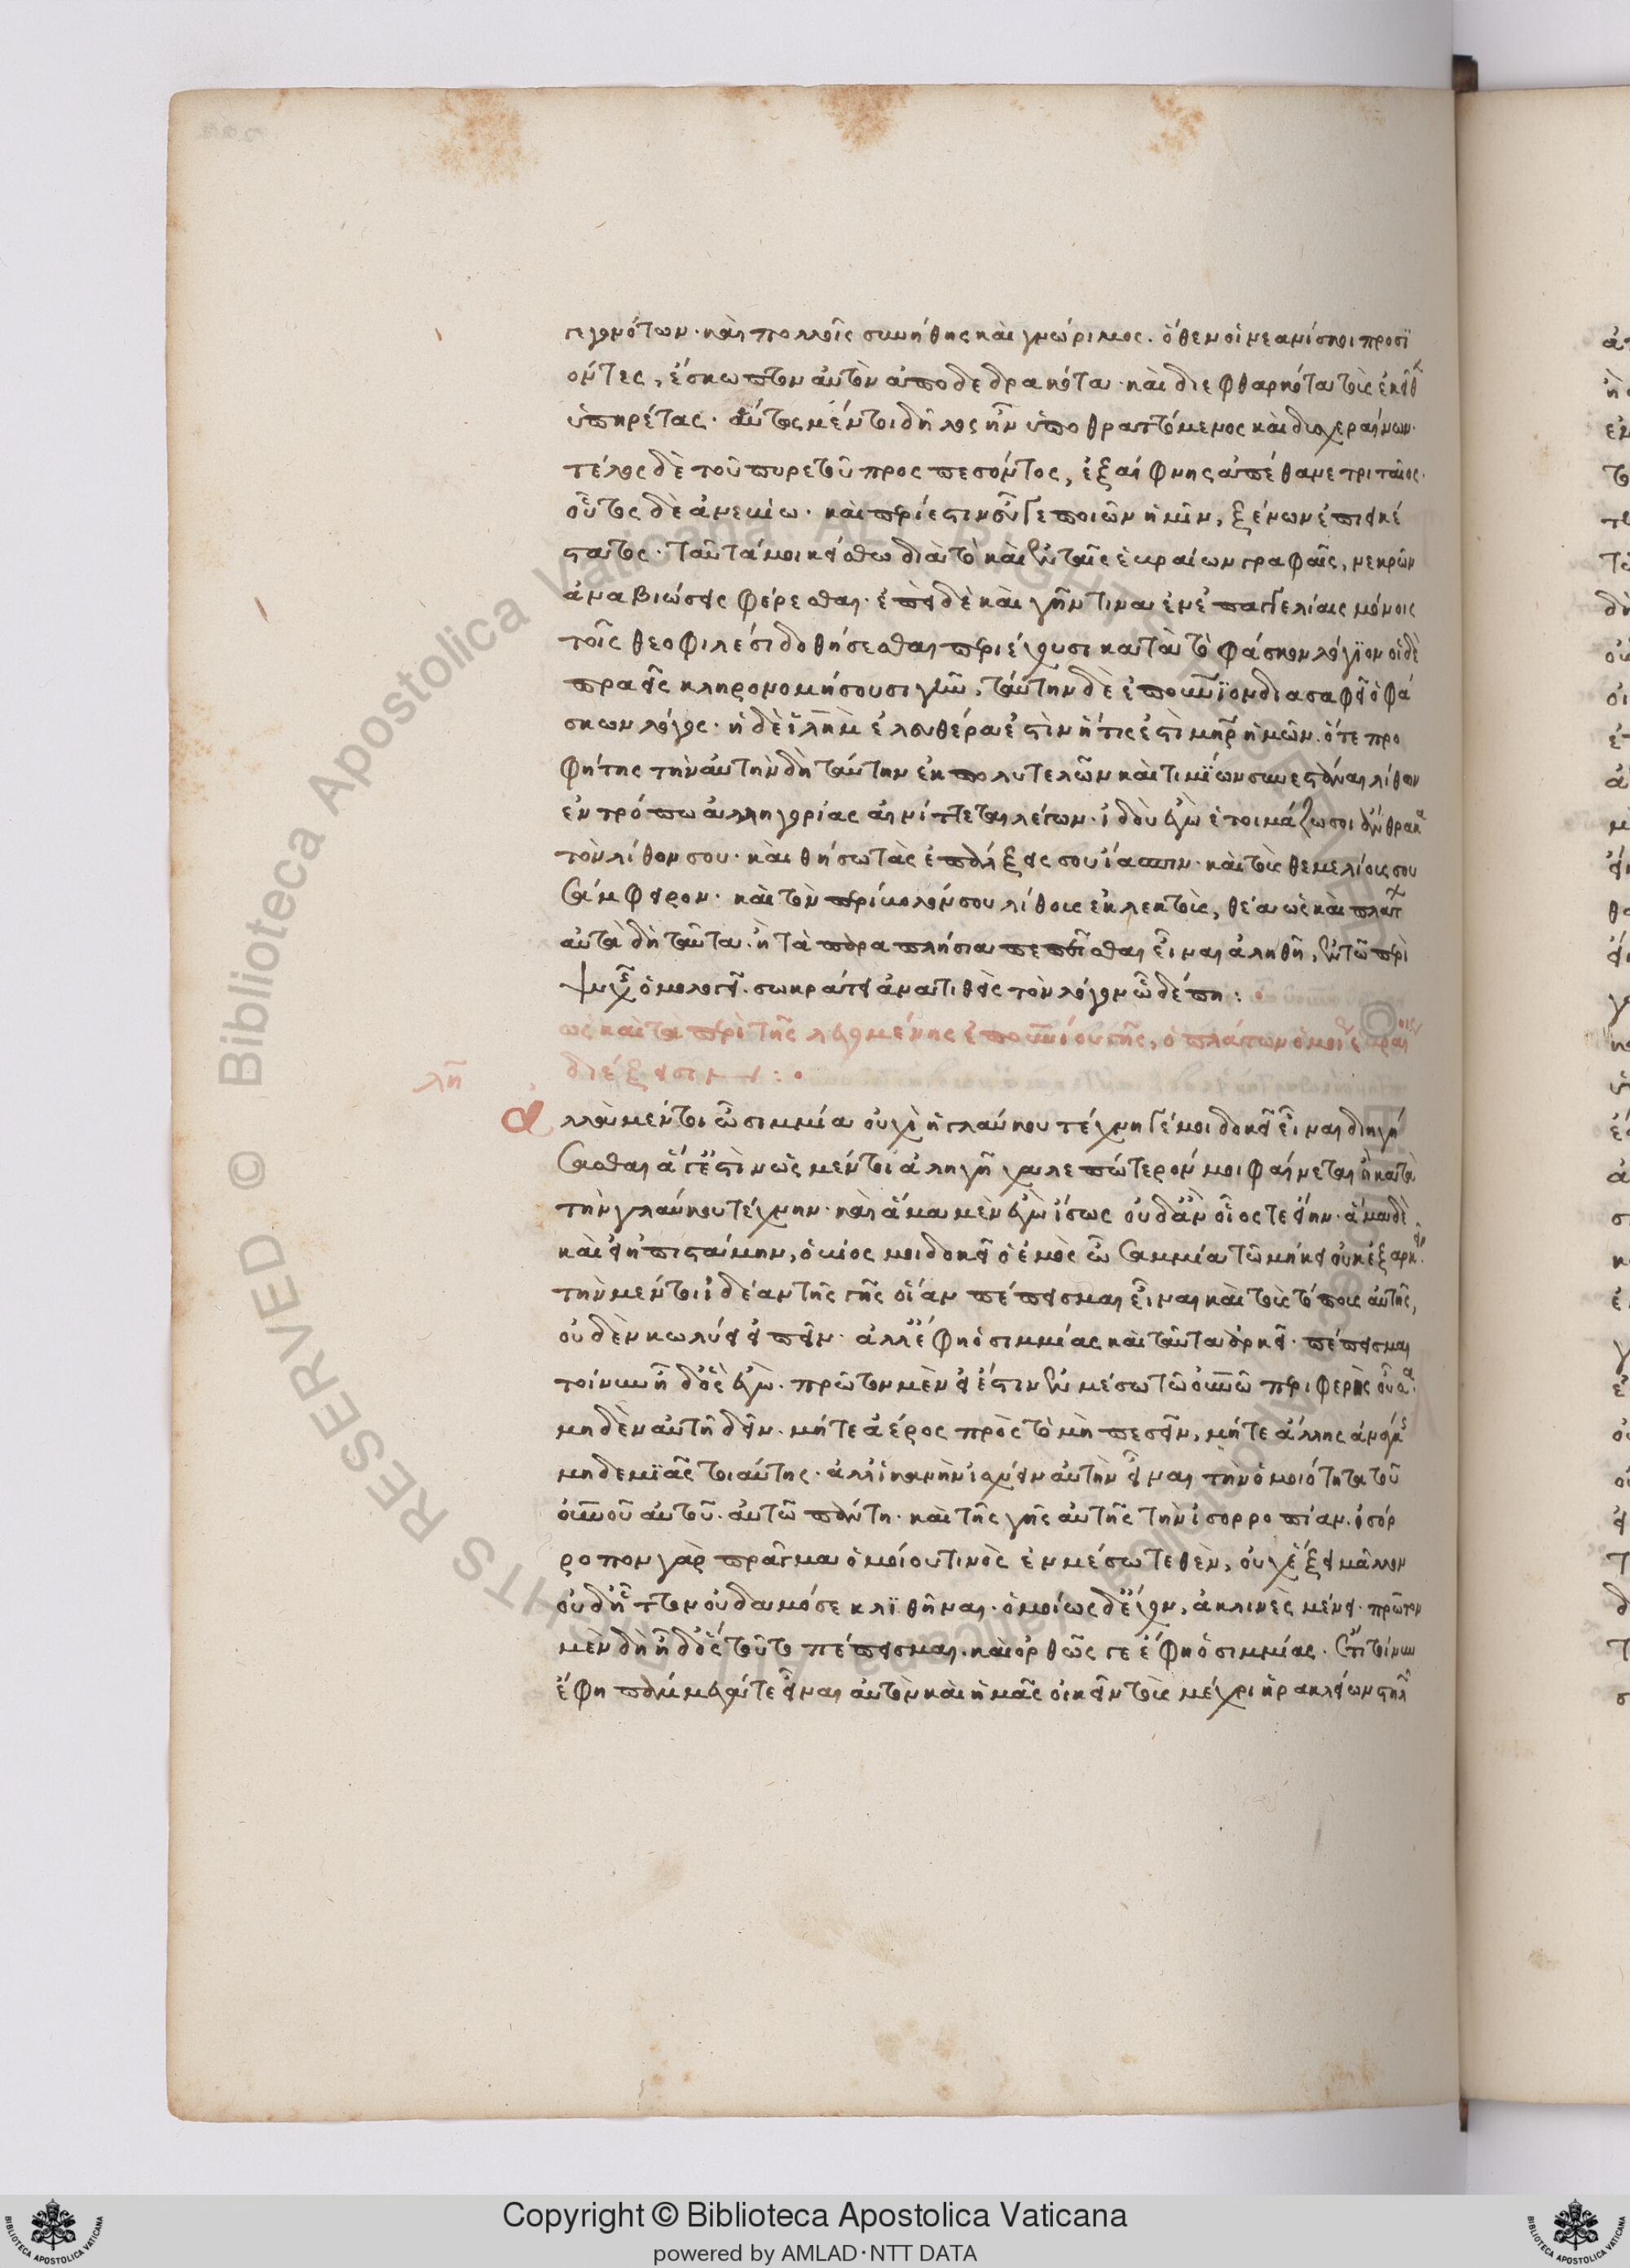 γεγονότων· καὶ πολλοῖς συνήθης καὶ γνώριμος. ὅθεν οἱ νεανίσκοι προσϊ
όντες, ἔσκωπτον αὐτὸν ἀποδεδρακότα· καὶ διεφθαρκότα τοὺς ἐκεῖθ
ὑπηρέτας· αὐτὸς μέντοι δῆλος ἦν ὑποθραττόμενος καὶ δυσχεραίνων.
τέλος δὲ τοῦ πυρετοῦ προσπεσόντος, ἐξαίφνης ἀπέθανε τριταῖος.
οὗτος δὲ ἀνεβίω· καὶ περίεστιν εὖ γε ποιῶν ἡμῖν, ξένων ἐπιεικέ
στατος· ταῦτά μοι κείσθω διὰ τὸ καὶ ἐν ταῖς ἑβραίων γραφαῖς, νεκρῶν
ἀναβιώσεις φέρεσθαι· ἐπεὶ δὲ καὶ γῆν τινα ἐν ἐπαγγελίαις μόνοις
τοῖς θεοφιλέσι δοθήσεσθαι περιέχουσι κατὰ τὸ φάσκον λόγιον οἱ δὲ
πραεῖς κληρονομήσουσι γῆν, ταύτην δὲ ἐπουράνιον διασαφεῖ ὁ φά
σκων λόγος· ἡ δὲ ἄνω ἱλῆμ ἐλευθέρα ἐστὶν ἥτις ἐστὶ μηρ ἡμῶν. ὅτε προ
φήτης τὴν αὐτὴν δὴ ταύτην ἐκ πολυτελῶν καὶ τιμίων συνεστάναι λίθων
ἐν τρόπω ἀλληγορίας αἰνίττεται λέγων· ἰδοὺ ἐγὼ ἑτοιμάζω σοι ἄνθρακα
τὸν λίθον σου· καὶ θήσω τὰς ἐπάλξεις σου ἴασπιν· καὶ τοὺς θεμελίους σου
σάμφειρον· καὶ τὸν περίβολόν σου λίθους ἐκλεκτοὺς, θέα ὡς καὶ πλατ
αὐτὰ δὴ ταῦτα. ἢ τὰ παραπλήσια πεπεῖσθαι εἶναι ἀληθῆ, ἐν τῶ περὶ
ψυχῆς ὁμολογεῖ. σωκράτει ἀνατιθεὶς τὸν λόγον ὧδέ πη:
ὡς καὶ τὰ περὶ τῆς λεγομένης ἐπουρανίου γῆς, ὁ πλάτων ὁμοίως ἑβραίοις
διέξεισιν:
λη
ἀλλὰ μέντοι ὦ σιμμία οὐχὶ ἡ γλαύκου τέχνη γέ μοι δοκεῖ εἶναι διηγή
σασθαι ἅ γ' ἐστὶν ὡς μέντοι ἀληθῆ χαλεπώτερόν μοι φαίνεται ἢ κατὰ
τὴν γλαύκου τέχνην· καὶ ἅμα μὲν ἐγὼ ἴσως οὐδ' ἂν οἷός τε εἴην. ἅμα δὲ
καὶ εἰ ἠπιστάμην, ὁ βίος μοι δοκεῖ ὁ ἐμὸς ὦ σιμμία τῶ μήκει οὐκ ἐξαρκεῖν.
τὴν μέντοι ἰδέαν τῆς γῆς οἵαν πέπεισμαι εἶναι καὶ τοὺς τόπους αὐτῆς,
οὐδὲν κωλύει εἰπεῖν. ἀλλ' ἔφη ὁ σιμμίας καὶ ταῦτα ἀρκεῖ· πέπεισμαι
τοίνυν ἦ δ' ὃς ἐγὼ. πρῶτον μὲν εἰ ἔστιν ἐν μέσω τῶ οὐνῶ περιφερὴς οὖσα.
μηδὲν αὐτῆ δεῖν. μήτε ἀέρος πρὸς τὸ μὴ πεσεῖν, μήτε ἄλλης ἀνάγκης
μηδεμϊᾶς τοιαύτης· ἀλλ' ἱκανὴν ἰσχύειν αὐτὴν εἶναι τὴν ὁμοιότητα τοῦ
οὐνοῦ αὐτοῦ. αὐτῶ πάντη. καὶ τῆς γῆς αὐτῆς τὴν ἰσορροπίαν. ἰσόρ
ροπον γὰρ πρᾶγμα ὁμοίου τινὸς ἐν μέσω τεθὲν, οὐχ ἕξει μᾶλλον
οὐδ' ἧττον οὐδαμόσε κλϊθῆναι. ὁμοίως δ' ἔχον, ἀκλινὲς μένει. πρῶτον
μὲν δὴ ἦ δ' ὃς τοῦτο πέπεισμαι. καὶ ὀρθῶς γε ἔφη ὁ σιμμίας. ἔτι τοίνυν
ἔφη πάμμεγά τε εἶναι αὐτὸν καὶ ἡμᾶς οἰκεῖν τοὺς μέχρι ἡρακλείων στηλῶν